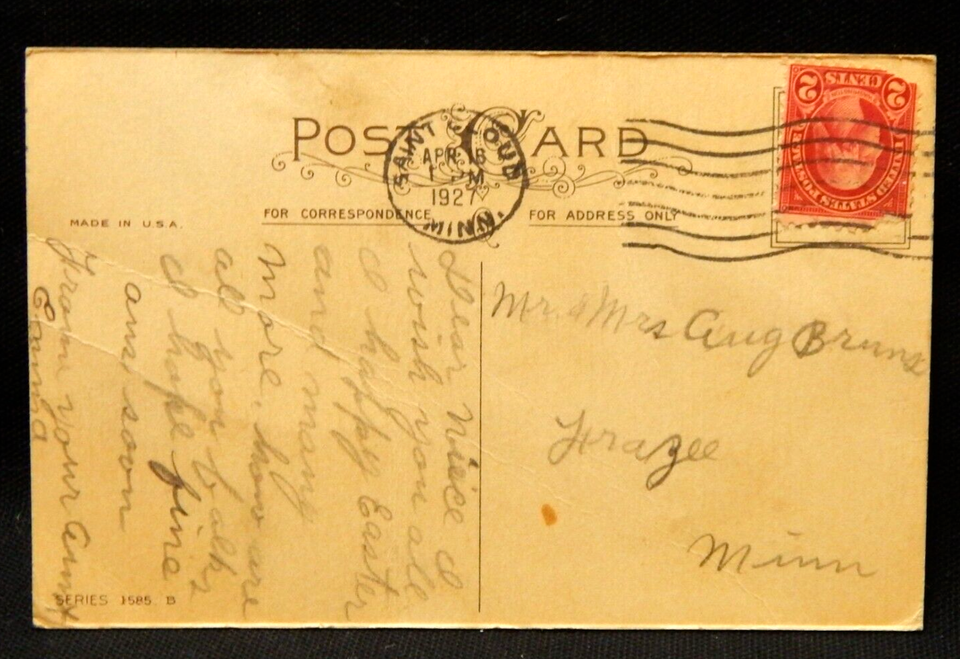 POST CARD
SAINT CLOUD
APR 16
PM
1927
MINN.
2 CENTS 2
UNITED STATES POSTAGE
MADE IN U.S.A.
FOR CORRESPONDENCE
FOR ADDRESS ONLY
Dear Niece I
wish you all
a happy Easter
and many
more. how are
all you folks
I hope fine
ans soon
From your Aunt
Emma
Mr. & Mrs Aug Bruns
Frazee
Minn
SERIES 1585. B